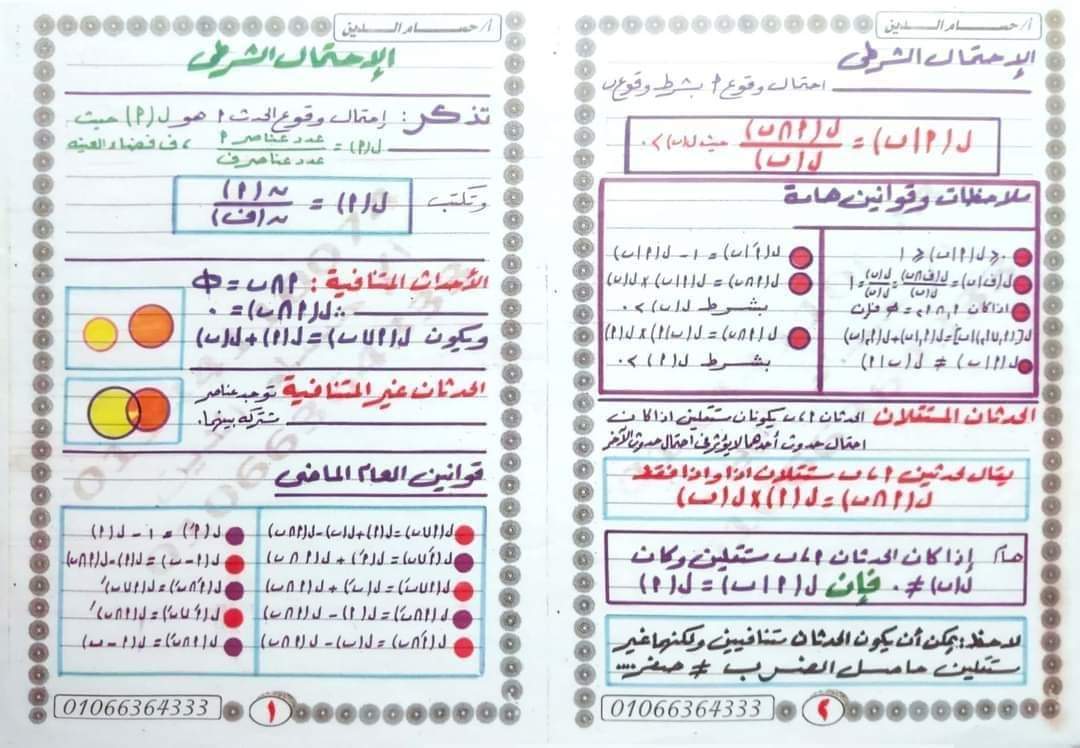 أ/حسام الدين
الإحتمال الشرطى
تذكر: إحتمال وقوع الحدث أ هو ل(أ) حيث
ل(أ) = عدد عناصر أ / عدد عناصر ف ، ف فضاء العينه
وتكتب ل(أ) = ن(أ) / ن(ف)
الأحداث المتنافية : أ∩ب = Φ
∴ ل(أ∩ب) = ٠
ويكون ل(أ∪ب) = ل(أ)+ل(ب)
الحدثان غير المتنافية توجد عناصر
مشتركه بينهما.
قوانين العام الماضى
ل(أ∪ب)=ل(أ)+ل(ب)-ل(أ∩ب)
ل(أَ∪ب)=ل(أَ)+ل(أ∩ب)
ل(أ∪بَ)=ل(بَ)+ل(أ∩ب)
ل(أ∩بَ)=ل(أ)-ل(أ∩ب)
ل(أَ∩ب)=ل(ب)-ل(أ∩ب)
ل(أَ)=١-ل(أ)
ل(أ-ب)=ل(أ)-ل(أ∩ب)
ل(أَ∩بَ)=ل(أ∪ب)َ
ل(أَ∪بَ)=ل(أ∩ب)َ
ل(أ∩بَ)=ل(أ-ب)
01066364333
١
أ/حسام الدين
الإحتمال الشرطى
احتمال وقوع أ بشرط وقوع ب
ل(أ|ب) = ل(أ∩ب) / ل(ب) حيث ل(ب)>٠
ملاحظات وقوانين هامة
٠ ≤ ل(أ|ب) ≤ ١
ل(ف|ب) = ل(ف∩ب) / ل(ب) = ل(ب) / ل(ب) = ١
اذا كان أ١∩أ٢ = Φ فإن
ل[(أ١∪أ٢)|ب]=ل(أ١|ب)+ل(أ٢|ب)
ل(أ|ب) ≠ ل(ب|أ)
ل(أَ|ب) = ١ - ل(أ|ب)
ل(أ∩ب)=ل(أ|ب)×ل(ب)
بشرط ل(ب)>٠
ل(أ∩ب)=ل(ب|أ)×ل(أ)
بشرط ل(أ)>٠
الحدثان المستقلان الحدثان أ،ب يكونان مستقلين اذا كان
احتمال حدوث أحدهما لا يؤثر فى احتمال حدوث الآخر
يقال لحدثين أ،ب مستقلان اذا واذا فقط
ل(أ∩ب)=ل(أ)×ل(ب)
هام إذا كان الحدثان أ،ب مستقلين وكان
ل(ب)≠٠ فإن ل(أ|ب)=ل(أ)
لاحظ: يمكن أن يكون الحدثان متنافيين ولكنها غير
مستقلين حاصل الضرب ≠ صفر....
01066364333
٢